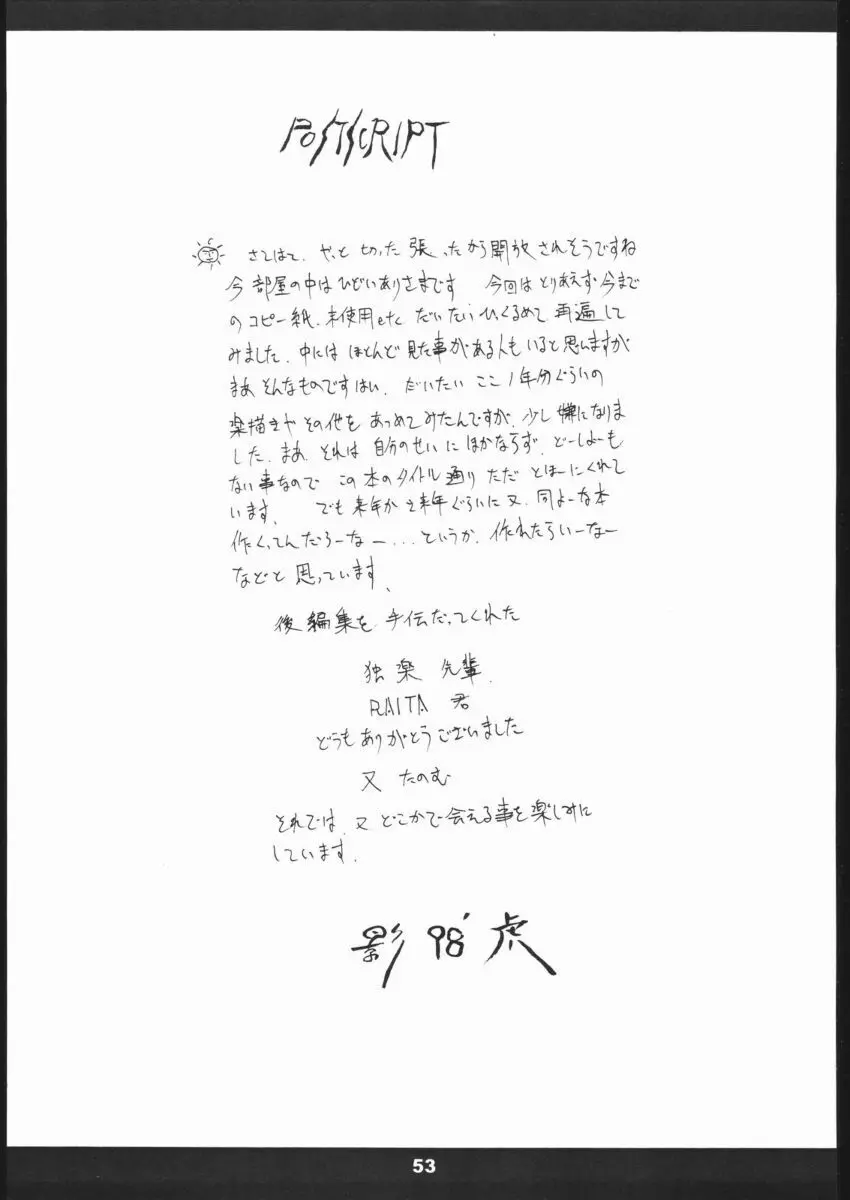 POSTSCRIPT
さてはて、やっと切った張ったから開放されそうですね
今部屋の中はひどいありさまです 今回はとりあえず今まで
のコピー紙、未使用etc だいたいひっくるめて再編して
みました、中にはほとんど見た事がある人もいると思いますが
まあそんなものですはい、だいたいここ1年分ぐらいの
楽描きやその他をあつめてみたんですが、少し嫌になりま
した、まあ それは自分のせいにほかならず、どーしよーも
ない事なので この本のタイトル通りただとほーにくれて
います、 でも来年か再来年ぐらいに又、同よーな本
作くってんだろーなー...というか、作れたらいーなー
などと思っています、
後編集を手伝だってくれた
独楽 先輩、
RAITA 君
どうもありがとうございました
又 たのむ
それでは、又どこかで会える事を楽しみに
しています、
影 98'虎
53